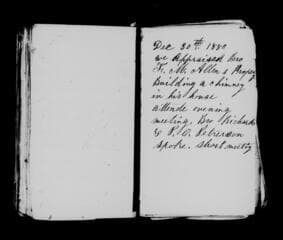 Dec 30th 1880
we Appraised Bro
Fr. M. Allen s Proper
Building a chimney
in his house
attende evening
meeting. Bro Richards
& P. O. Peterson
spoke. Short meeting